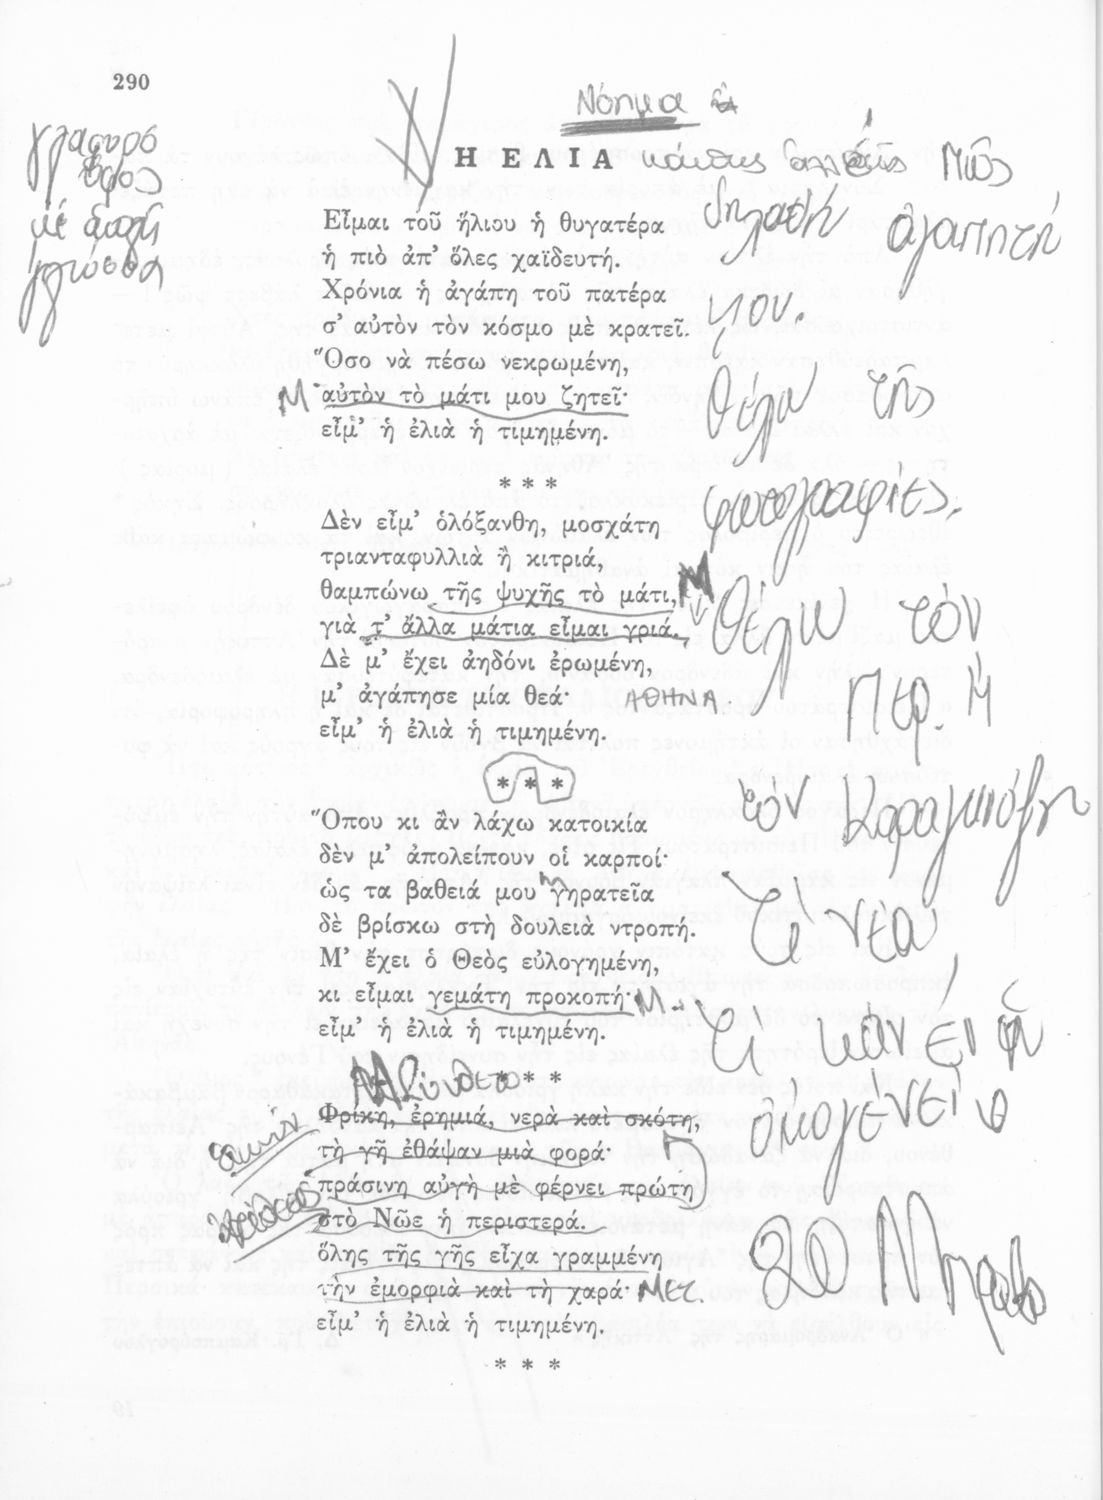 290
Νόημα
γλαφυρό
ὕφος
μέ ἁπλῆ
γλώσσα
Η ΕΛΙΑ
Εἶμαι τοῦ ἥλιου ἡ θυγατέρα
ἡ πιὸ ἀπ' ὅλες χαϊδευτή.
Χρόνια ἡ ἀγάπη τοῦ πατέρα
σ' αὐτὸν τὸν κόσμο μὲ κρατεῖ.
Ὅσο νὰ πέσω νεκρωμένη,
Μ αὐτὸν τὸ μάτι μου ζητεῖ·
εἶμ' ἡ ἐλιὰ ἡ τιμημένη.
* * *
Δὲν εἶμ' ὁλόξανθη, μοσχάτη
τριανταφυλλιὰ ἢ κιτριά,
θαμπώνω τῆς ψυχῆς τὸ μάτι, Μ
γιὰ τ' ἄλλα μάτια εἶμαι γριά.
Δὲ μ' ἔχει ἀηδόνι ἐρωμένη,
μ' ἀγάπησε μία θεά· ΑΘΗΝΑ
εἶμ' ἡ ἐλιὰ ἡ τιμημένη.
* * *
Ὅπου κι ἂν λάχω κατοικία
δὲν μ' ἀπολείπουν οἱ καρποί·
ὡς τα βαθειά μου γηρατεῖα
δὲ βρίσκω στὴ δουλειὰ ντροπή.
Μ' ἔχει ὁ Θεὸς εὐλογημένη,
κι εἶμαι γεμάτη προκοπή· Μ
εἶμ' ἡ ἐλιὰ ἡ τιμημένη.
* * *
Φρίκη, ἐρημιά, νερὰ καὶ σκότη,
τὴ γῆ ἐθάψαν μιὰ φορά·
πράσινη αὐγὴ μὲ φέρνει πρώτη
στὸ Νῶε ἡ περιστερά.
ὅλης τῆς γῆς εἶχα γραμμένη
τὴν ἐμορφιὰ καὶ τὴ χαρά· ΜΕΣ.
εἶμ' ἡ ἐλιὰ ἡ τιμημένη.
* * *
Μιῶς
δηλαδή ἀγαπητή
μου.
θέλω τῆς
φωτογραφίες.
Θέλω τὸν
τὸν Καραγκιόζη
Τί νέα
Τί κάνει ἡ
οἰκογένεια